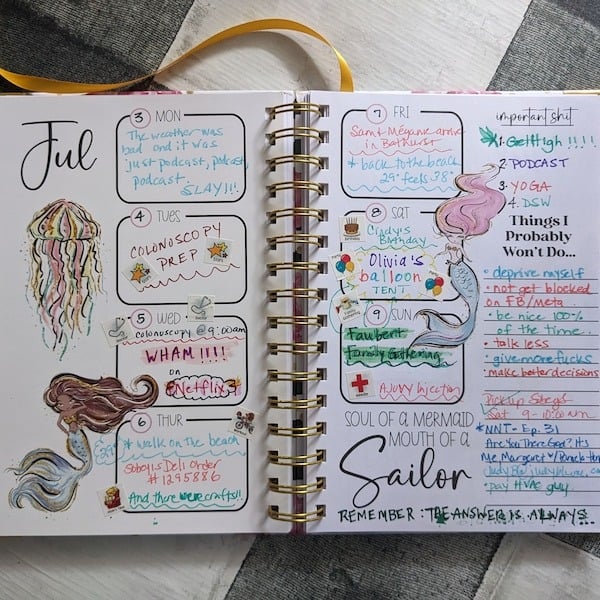 Jul
3 MON
The weather was
bad and it was
just podcast, podcast,
podcast.
SLAY!!!
4 TUES
COLONOSCOPY
PREP
5 WED
COLONOSCOPY @ 9:00am
WHAM!!!!
on
Netflix
6 THUR
29° * walk on the beach
Sobeys Deli Order
# 1295886
And there were crafts!!
7 FRI
Sam & Megane arrive
in Bathurst
* back to the beach
29° feels 38°
8 SAT
Cindy's
Birthday
Olivia's
balloon
TENT
9 SUN
Faubert
Family Gathering
AJOVY Injection
SOUL OF A MERMAID
MOUTH OF A
Sailor
REMEMBER: THE ANSWER IS ALWAYS...
important shit
1. Get High !!!!
2. PODCAST
3. YOGA
4. DSW
Things I
Probably
Won't Do...
• deprive myself
• not get blocked
on FB/Meta
• be nice 100%
of the time.
• talk less
• give more fucks
• make better decisions
Pick up Sobeys
Sat 9-10:00am
*NNT - Ep. 31
Are You There God? It's
Me Margaret
Judy Blume
• pay HVAC guy